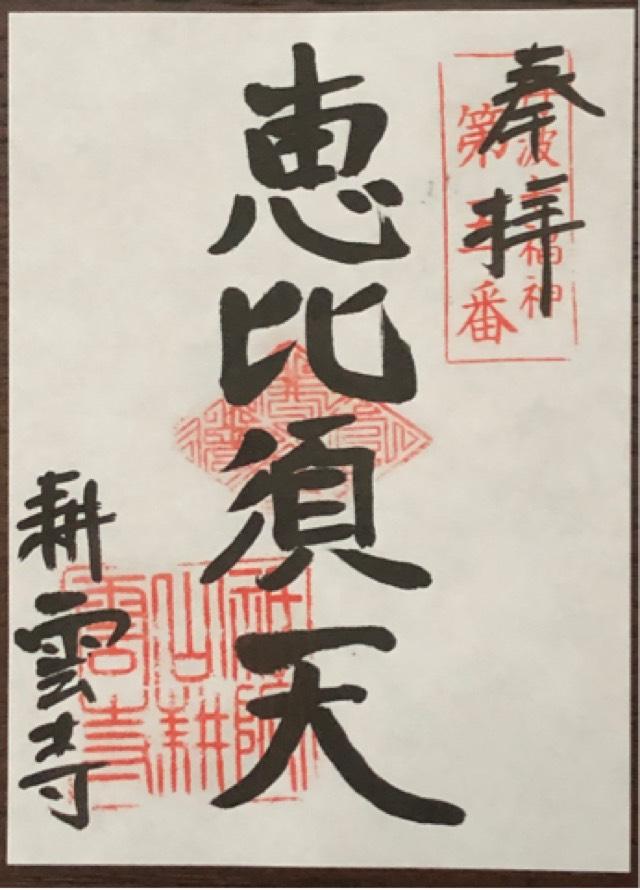 奉拝
丹波七福神
第五番
恵比須天
耕雲寺
山耕
雲寺